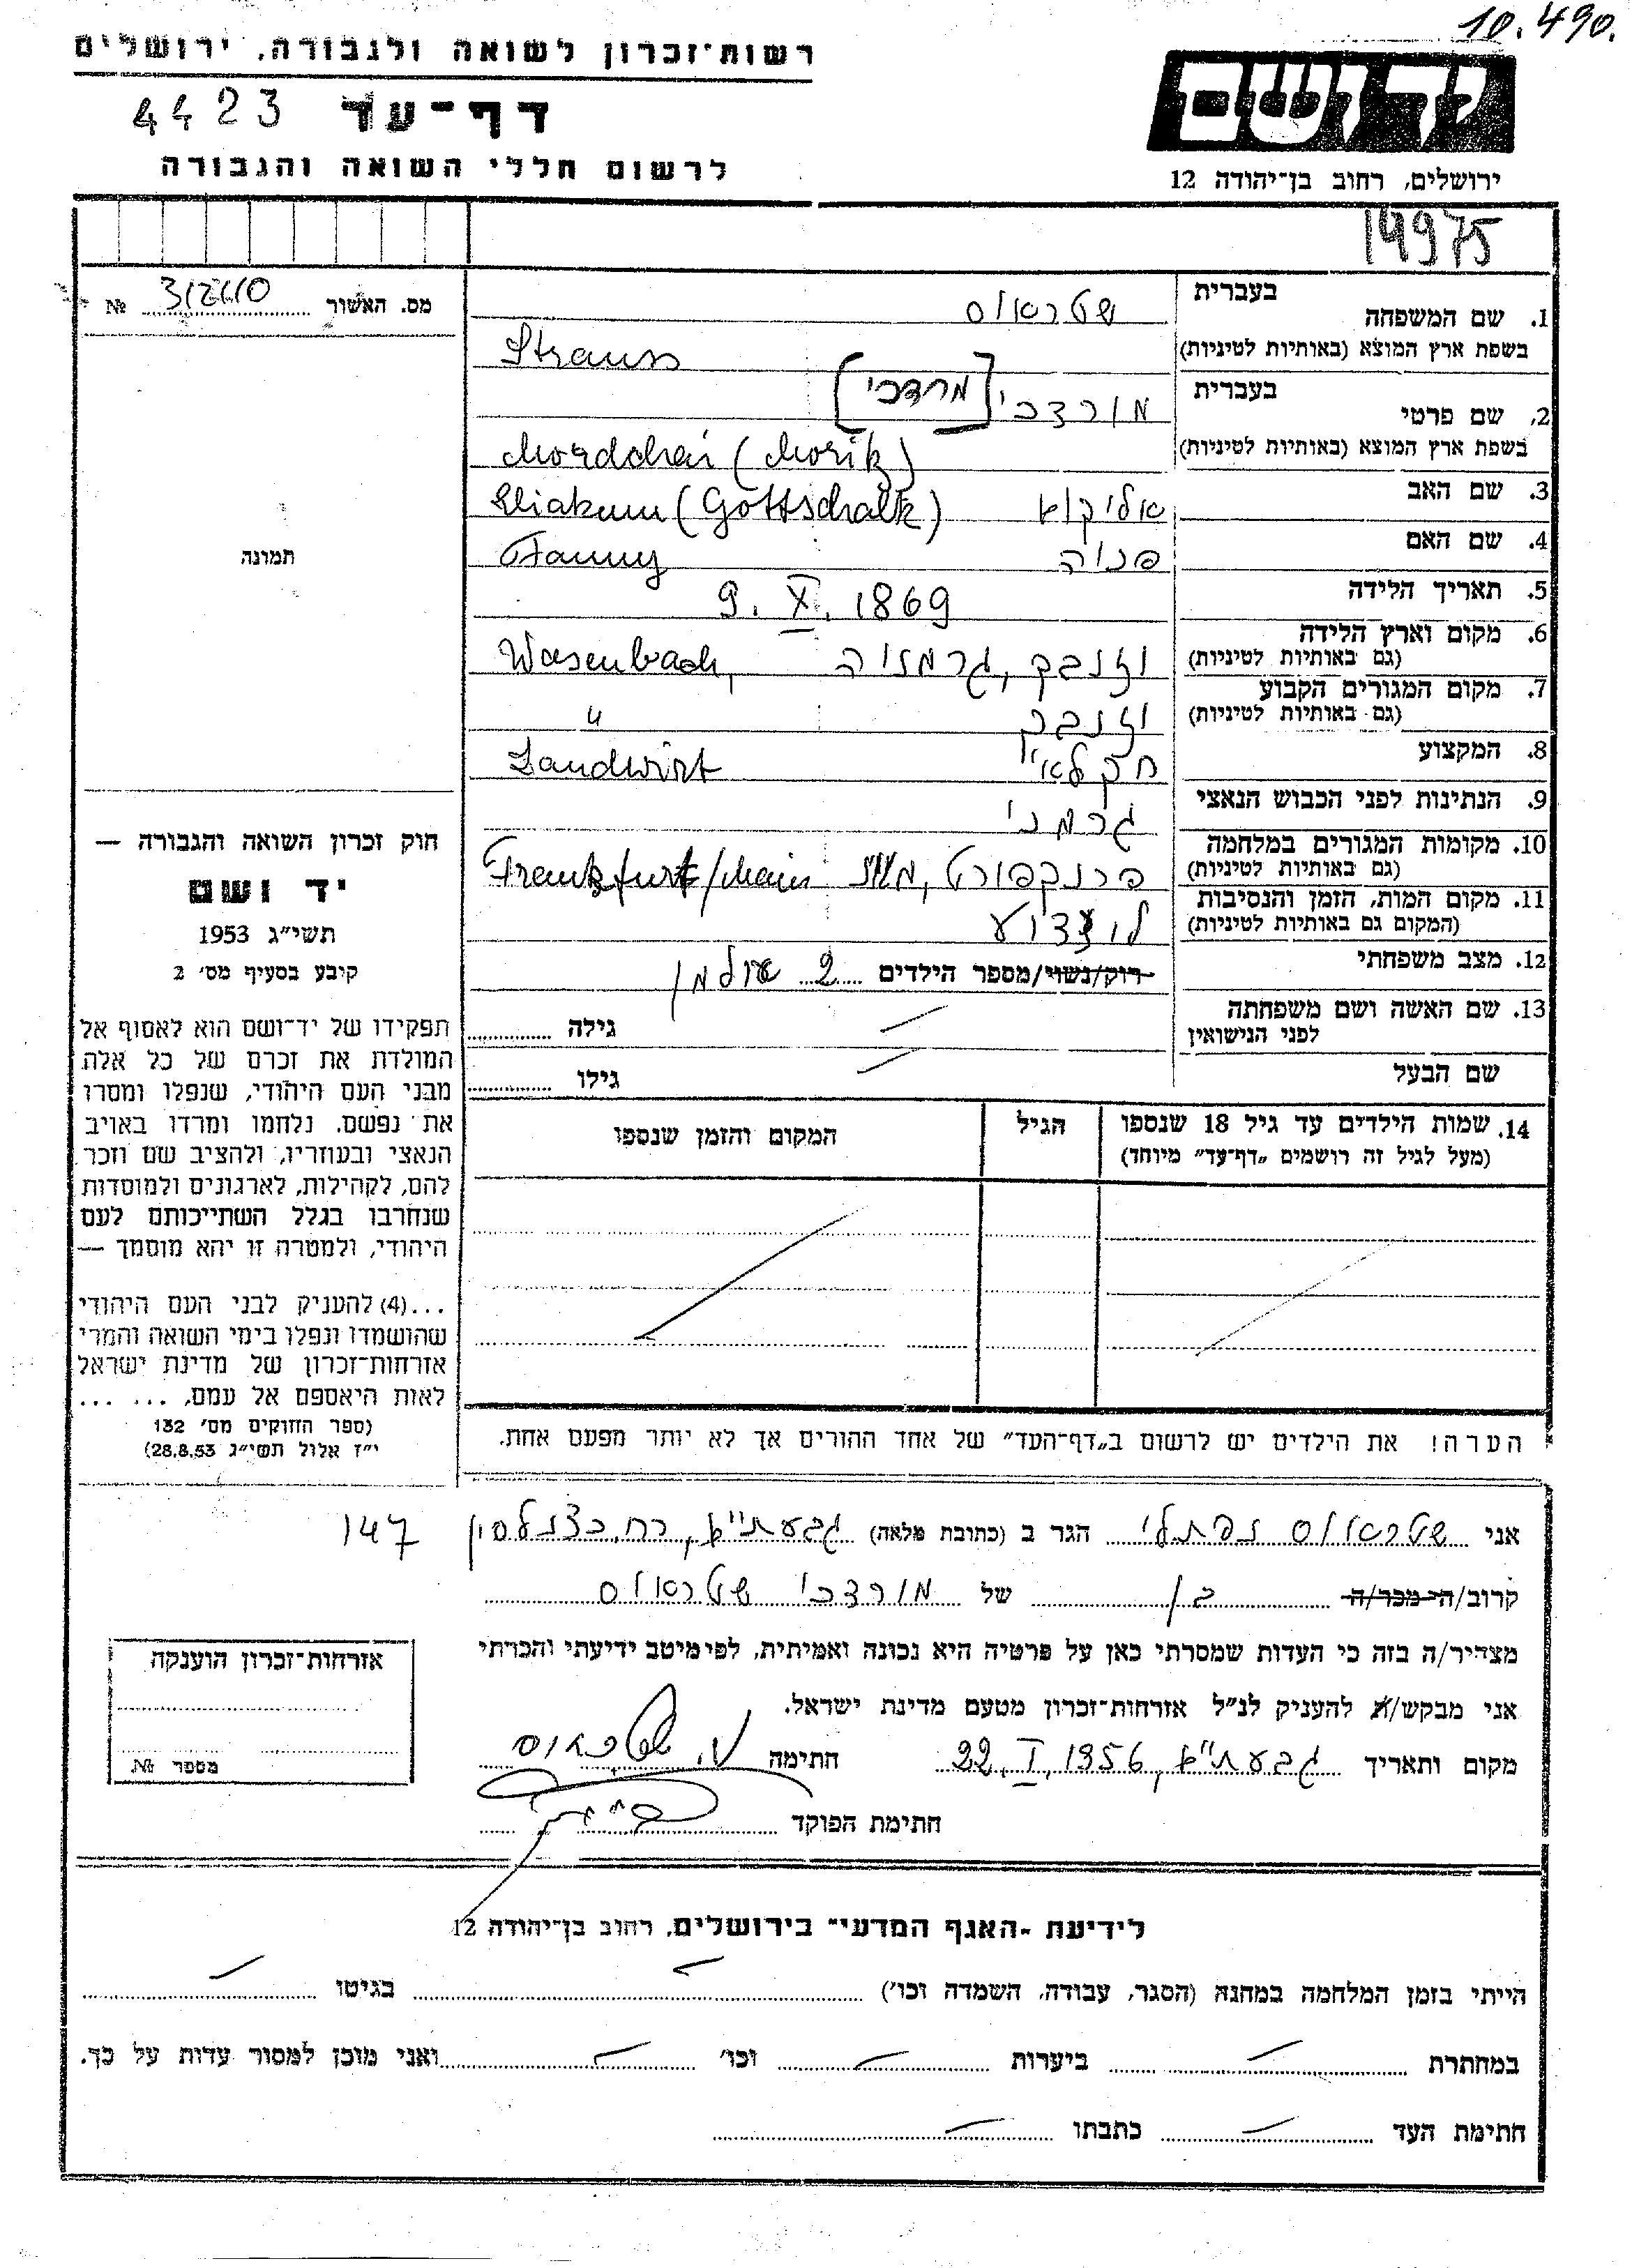 10.490.
רשות־זכרון לשואה ולגבורה, ירושלים
דף־עד 4423
לרשום חללי השואה והגבורה
יד ושם
ירושלים, רחוב בן־יהודה 12
14975
מס. האשור № 
1. שם המשפחה בעברית שטראוס
בשפת ארץ המוצא (באותיות לטיניות) Strauss
2. שם פרטי בעברית מורדכי [מרדכי]
בשפת ארץ המוצא (באותיות לטיניות) Mordchai (Moritz)
3. שם האב אליקום Eliakum (Gottschalk)
4. שם האם פניה Fanny
5. תאריך הלידה 9. X. 1869
6. מקום וארץ הלידה וזנבך, גרמניה Wasenbach,
(גם באותיות לטיניות)
7. מקום המגורים הקבוע וזנבך "
(גם באותיות לטיניות)
8. המקצוע חקלאי Landwirt
9. הנתינות לפני הכבוש הנאצי גרמני
10. מקומות המגורים במלחמה פרנקפורט, מיין Frankfurt/Main
(גם באותיות לטיניות)
11. מקום המות, הזמן והנסיבות לו ידוע
(המקום גם באותיות לטיניות)
12. מצב משפחתי רווק/נשוי/מספר הילדים 2 אלמן
13. שם האשה ושם משפחתה גילה
לפני הנישואין
שם הבעל גילו
14. שמות הילדים עד גיל 18 שנספו הגיל המקום והזמן שנספו
(מעל לגיל זה רושמים „דף־עד” מיוחד)
הערה! את הילדים יש לרשום ב„דף־העד” של אחד ההורים אך לא יותר מפעם אחת.
תמונה
חוק זכרון השואה והגבורה —
יד ושם
תשי״ג 1953
קיבע בסעיף מס׳ 2
תפקידו של יד־ושם הוא לאסוף אל
המולדת את זכרם של כל אלה
מבני העם היהודי, שנפלו ומסרו
את נפשם, נלחמו ומרדו באויב
הנאצי ובעוזריו, ולהציב שם וזכר
להם, לקהילות, לארגונים ולמוסדות
שנחרבו בגלל השתייכותם לעם
היהודי, ולמטרה זו יהא מוסמך —
...(4) להעניק לבני העם היהודי
שהושמדו ונפלו בימי השואה והמרי
אזרחות־זכרון של מדינת ישראל
לאות היאספם אל עמם, ... ...
(ספר החוקים מס׳ 132
י״ז אלול תשי״ג 28.8.53)
אני שטראוס נפתלי הגר ב (כתובת מלאה) גבעתיים, רח. כצנלסון 147
קרוב/ה מכר/ה בן של מורדכי שטראוס
מצהיר/ה בזה כי העדות שמסרתי כאן על פרטיה היא נכונה ואמיתית, לפי מיטב ידיעתי והכרתי
אני מבקש/ת להעניק לנ״ל אזרחות־זכרון מטעם מדינת ישראל.
מקום ותאריך גבעתיים, 22. I. 1956 חתימה נ. שטראוס
חתימת הפוקד
אזרחות־זכרון הוענקה
מספר №
לידיעת ״האגף המדעי״ בירושלים, רחוב בן־יהודה 12
הייתי בזמן המלחמה במחנה (הסגר, עבודה, השמדה וכו׳) בגיטו
במחתרת ביערות וכו׳ ואני מוכן למסור עדות על כך.
חתימת העד כתבתו